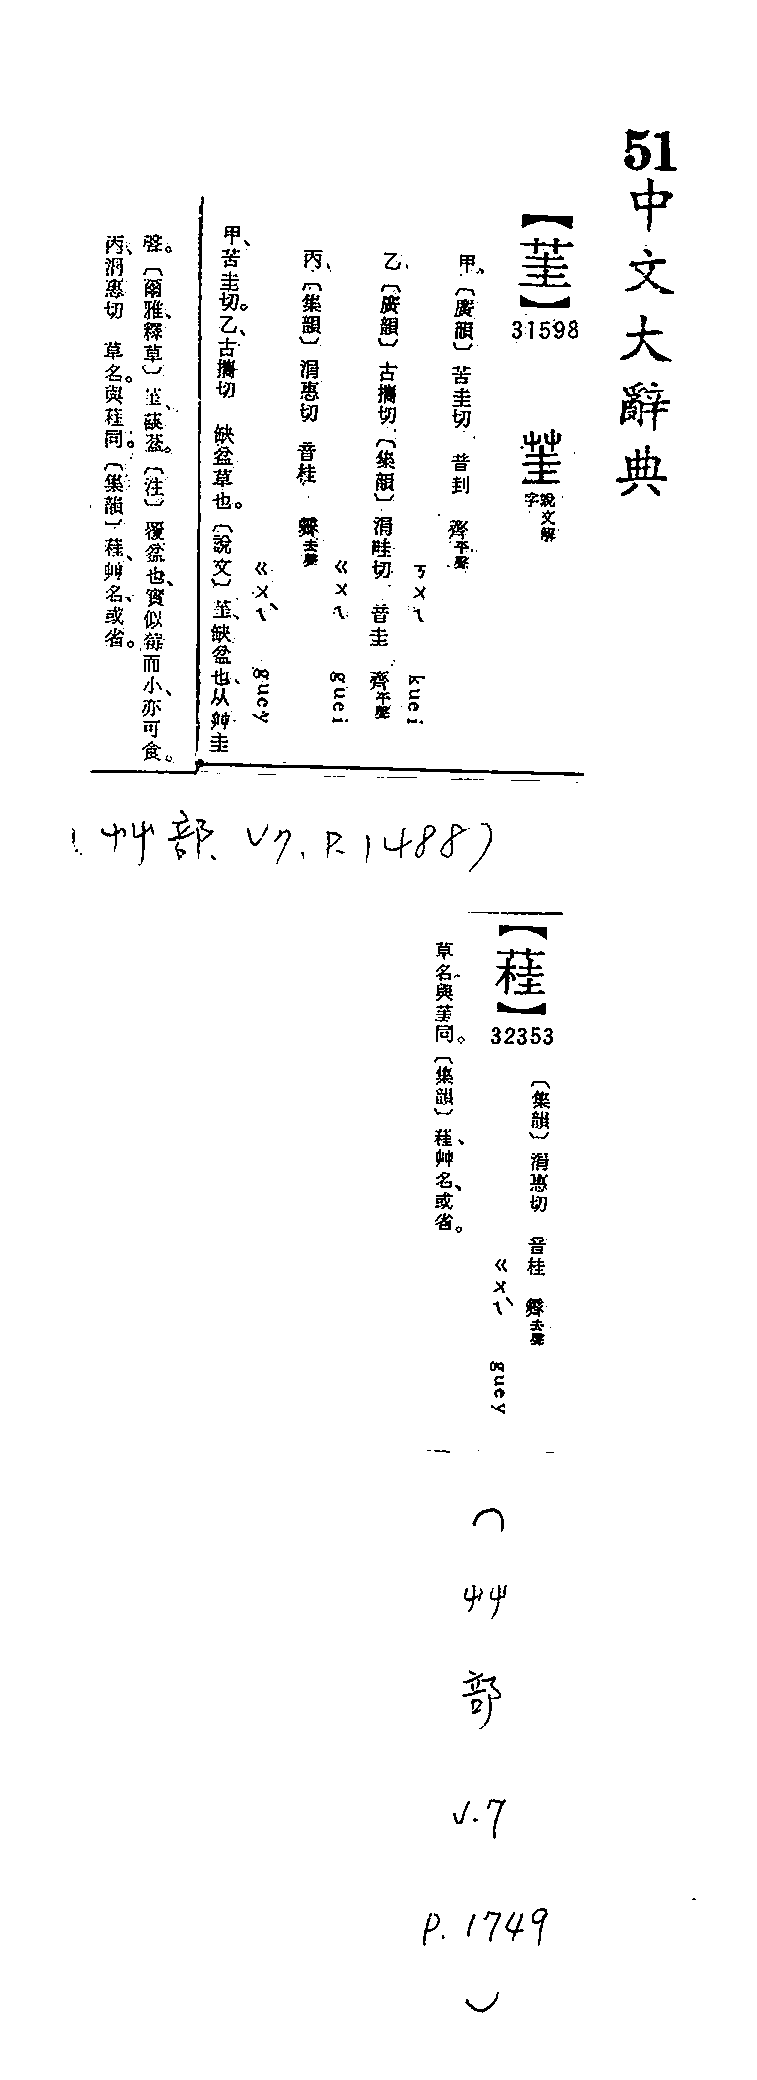 51中文大辭典
【茥】
31598
茥
說文解字
甲、〔廣韻〕苦圭切 音刲 齊平聲
ㄎㄨㄟ kuei
乙、〔廣韻〕古攜切〔集韻〕涓畦切 音圭 齊平聲
ㄍㄨㄟ guei
丙、〔集韻〕涓惠切 音桂 霽去聲
ㄍㄨㄟˋ guey
甲、苦圭切。乙、古攜切 缺盆草也。〔說文〕茥、缺盆也、从艸圭
聲。〔爾雅、釋草〕茥、蒛葐。〔注〕覆盆也、實似莓而小、亦可食。
丙、涓惠切 草名。與䓳同。〔集韻〕䓳、艸名、或省。
(艸部、V7, P.1488)
【䓳】
32353
〔集韻〕涓惠切 音桂 霽去聲
ㄍㄨㄟˋ guey
草名、與茥同。〔集韻〕䓳、艸名、或省。
(艸部 V.7 P.1749)